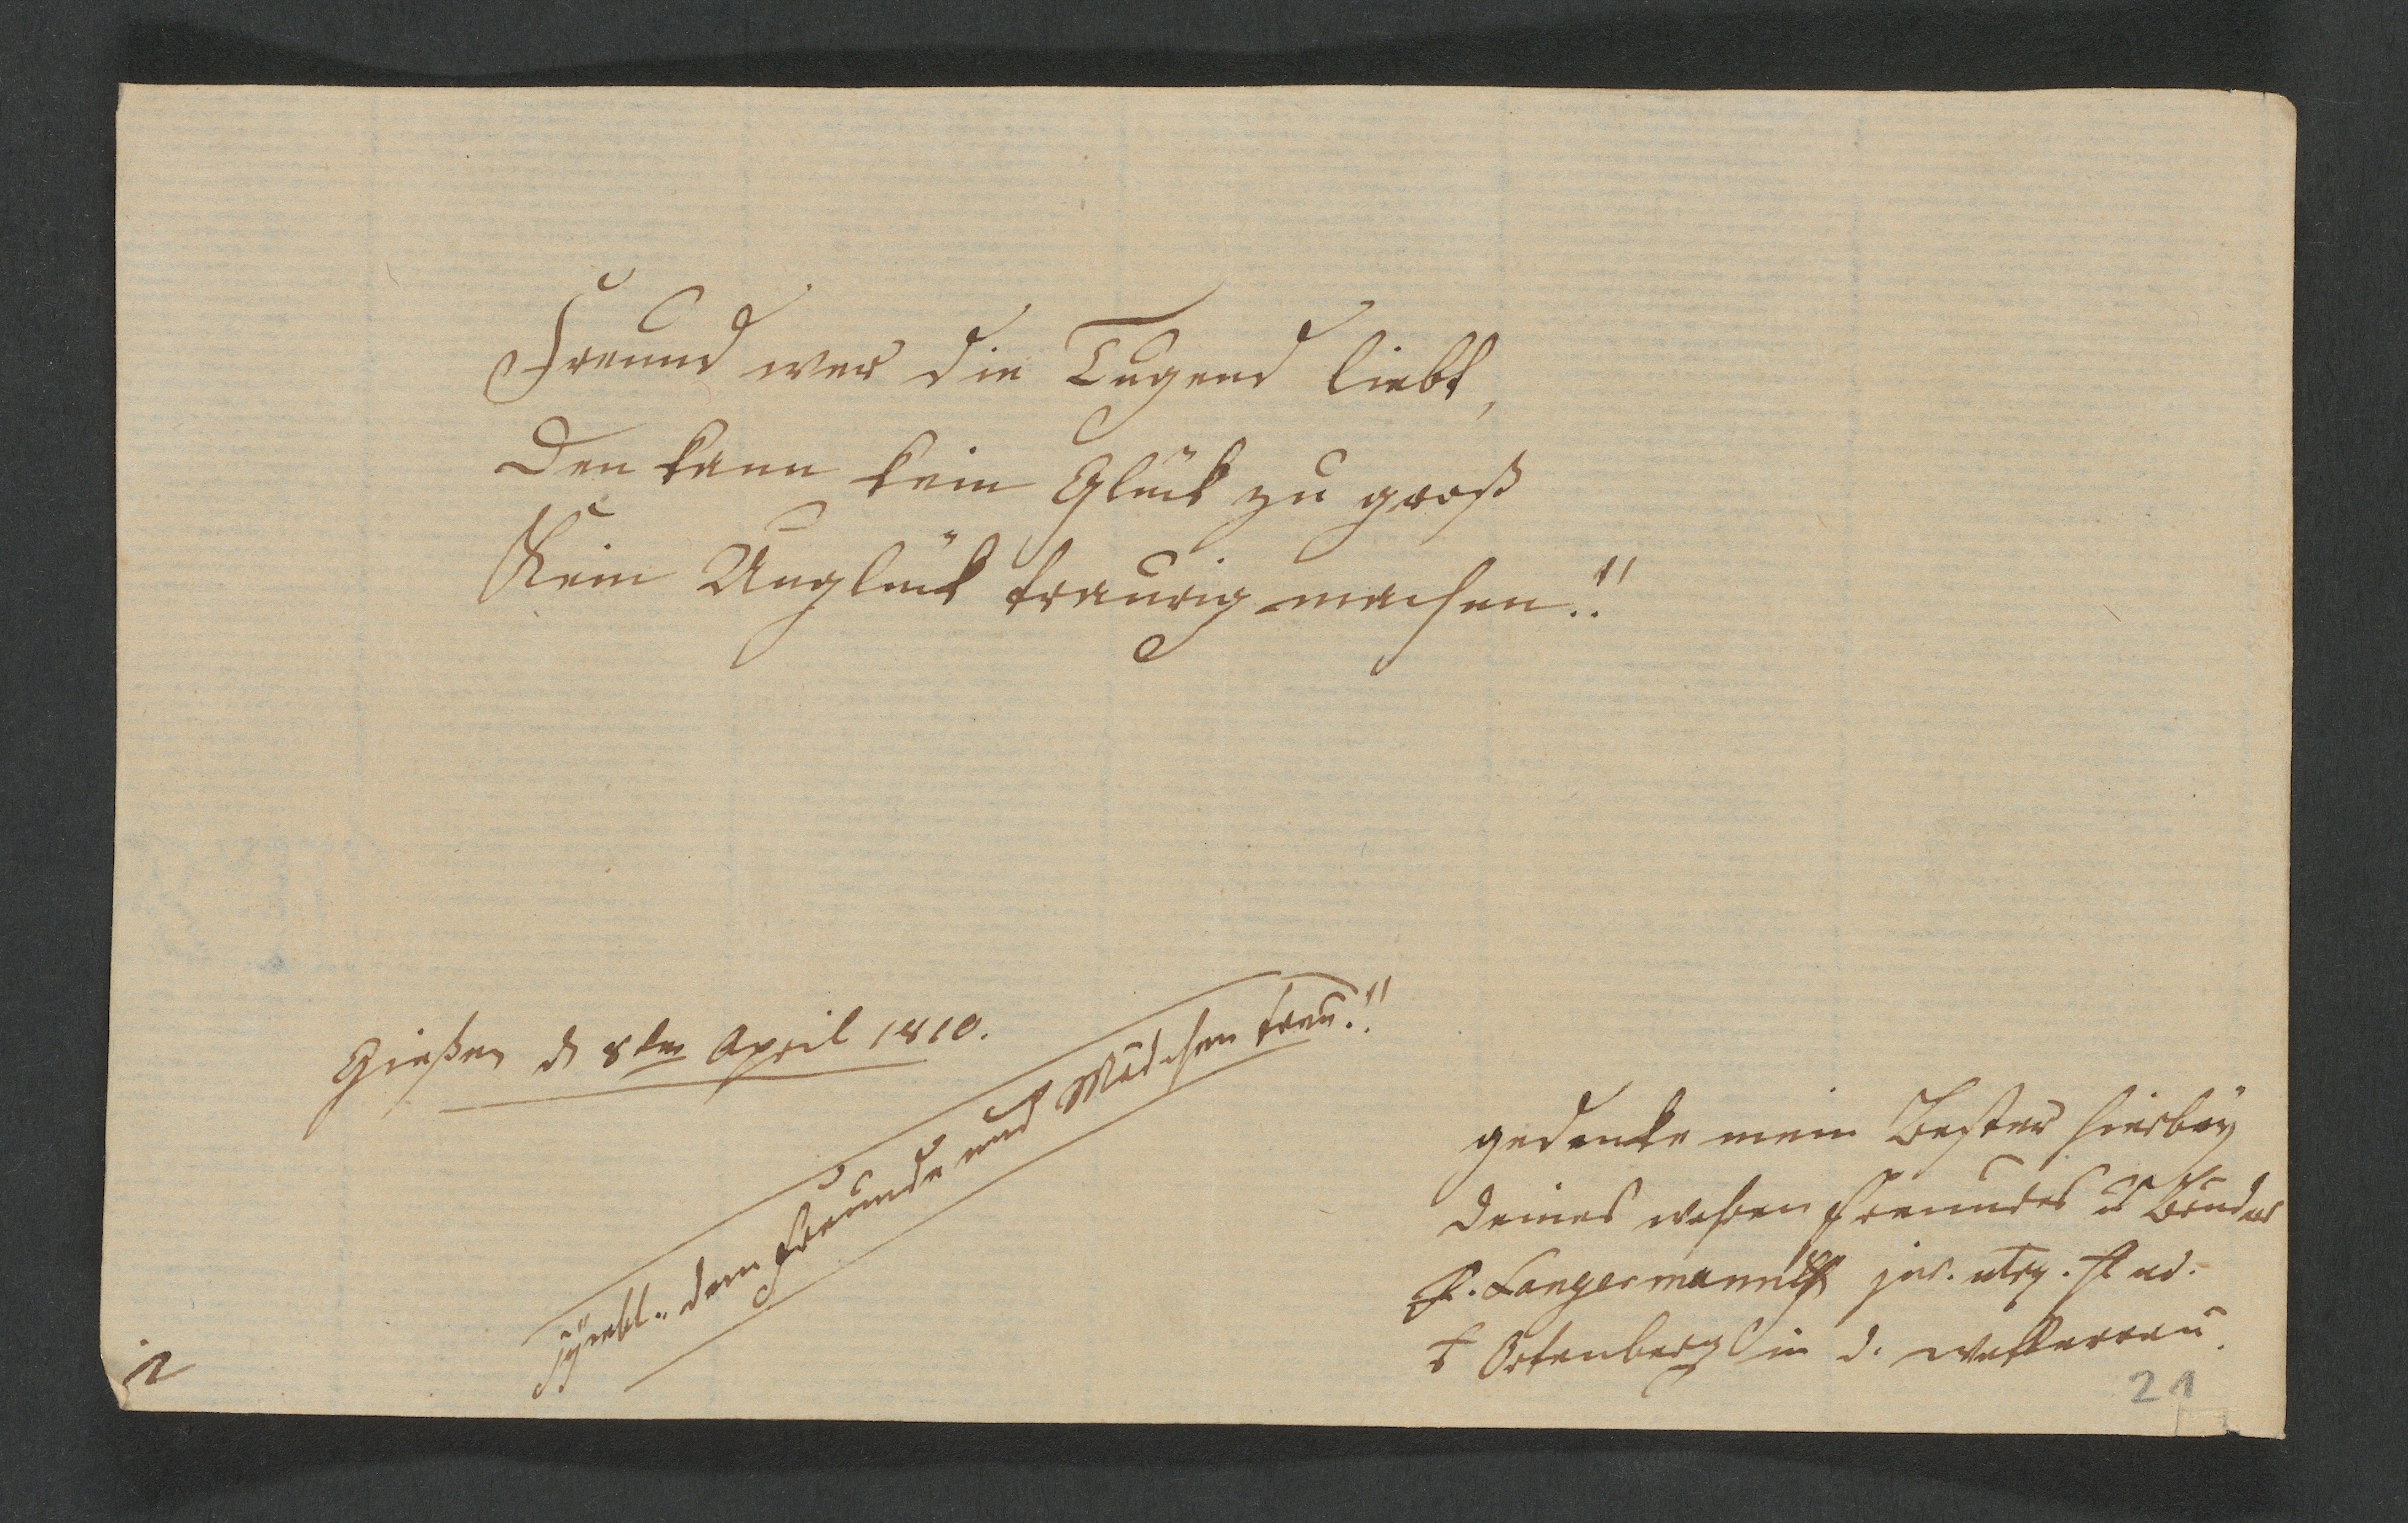 Freund wer die Tugend liebt,
Den kann kein Glück zu groß
Kein Unglück traurig machen!!
Gießen d 8ten April 1810.
Symbl.. dem Freunde und Mädchen treu!!
gedenke mein Bester hierbey
deines wahren Freundes u Bruder
F. Langermann jur. utrq. stud.
Ortenberg in d. Wetterau.
21